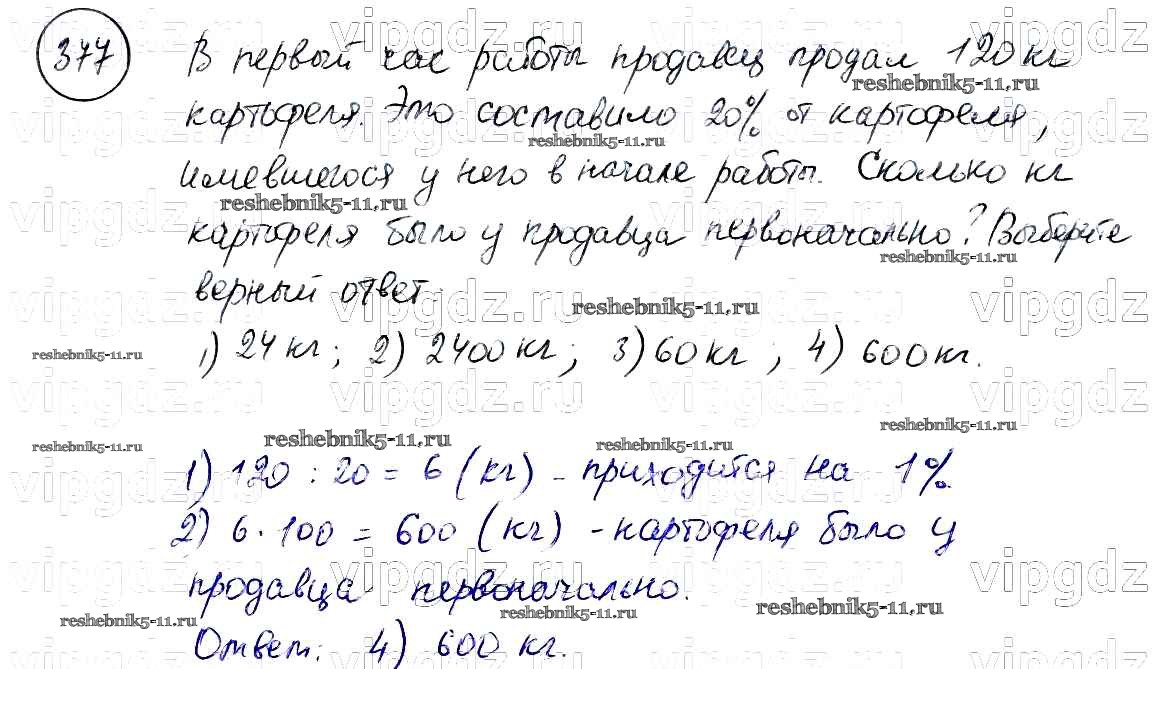 377 В первый час работы продавец продал 120 кг
картофеля. Это составило 20% от картофеля,
имевшегося у него в начале работы. Сколько кг
картофеля было у продавца первоначально? Выберите
верный ответ.
1) 24 кг; 2) 2400 кг; 3) 60 кг; 4) 600 кг.
1) 120 : 20 = 6 (кг) - приходится на 1%.
2) 6 · 100 = 600 (кг) - картофеля было у
продавца первоначально.
Ответ: 4) 600 кг.
vipgdz.ru
reshebnik5-11.ru